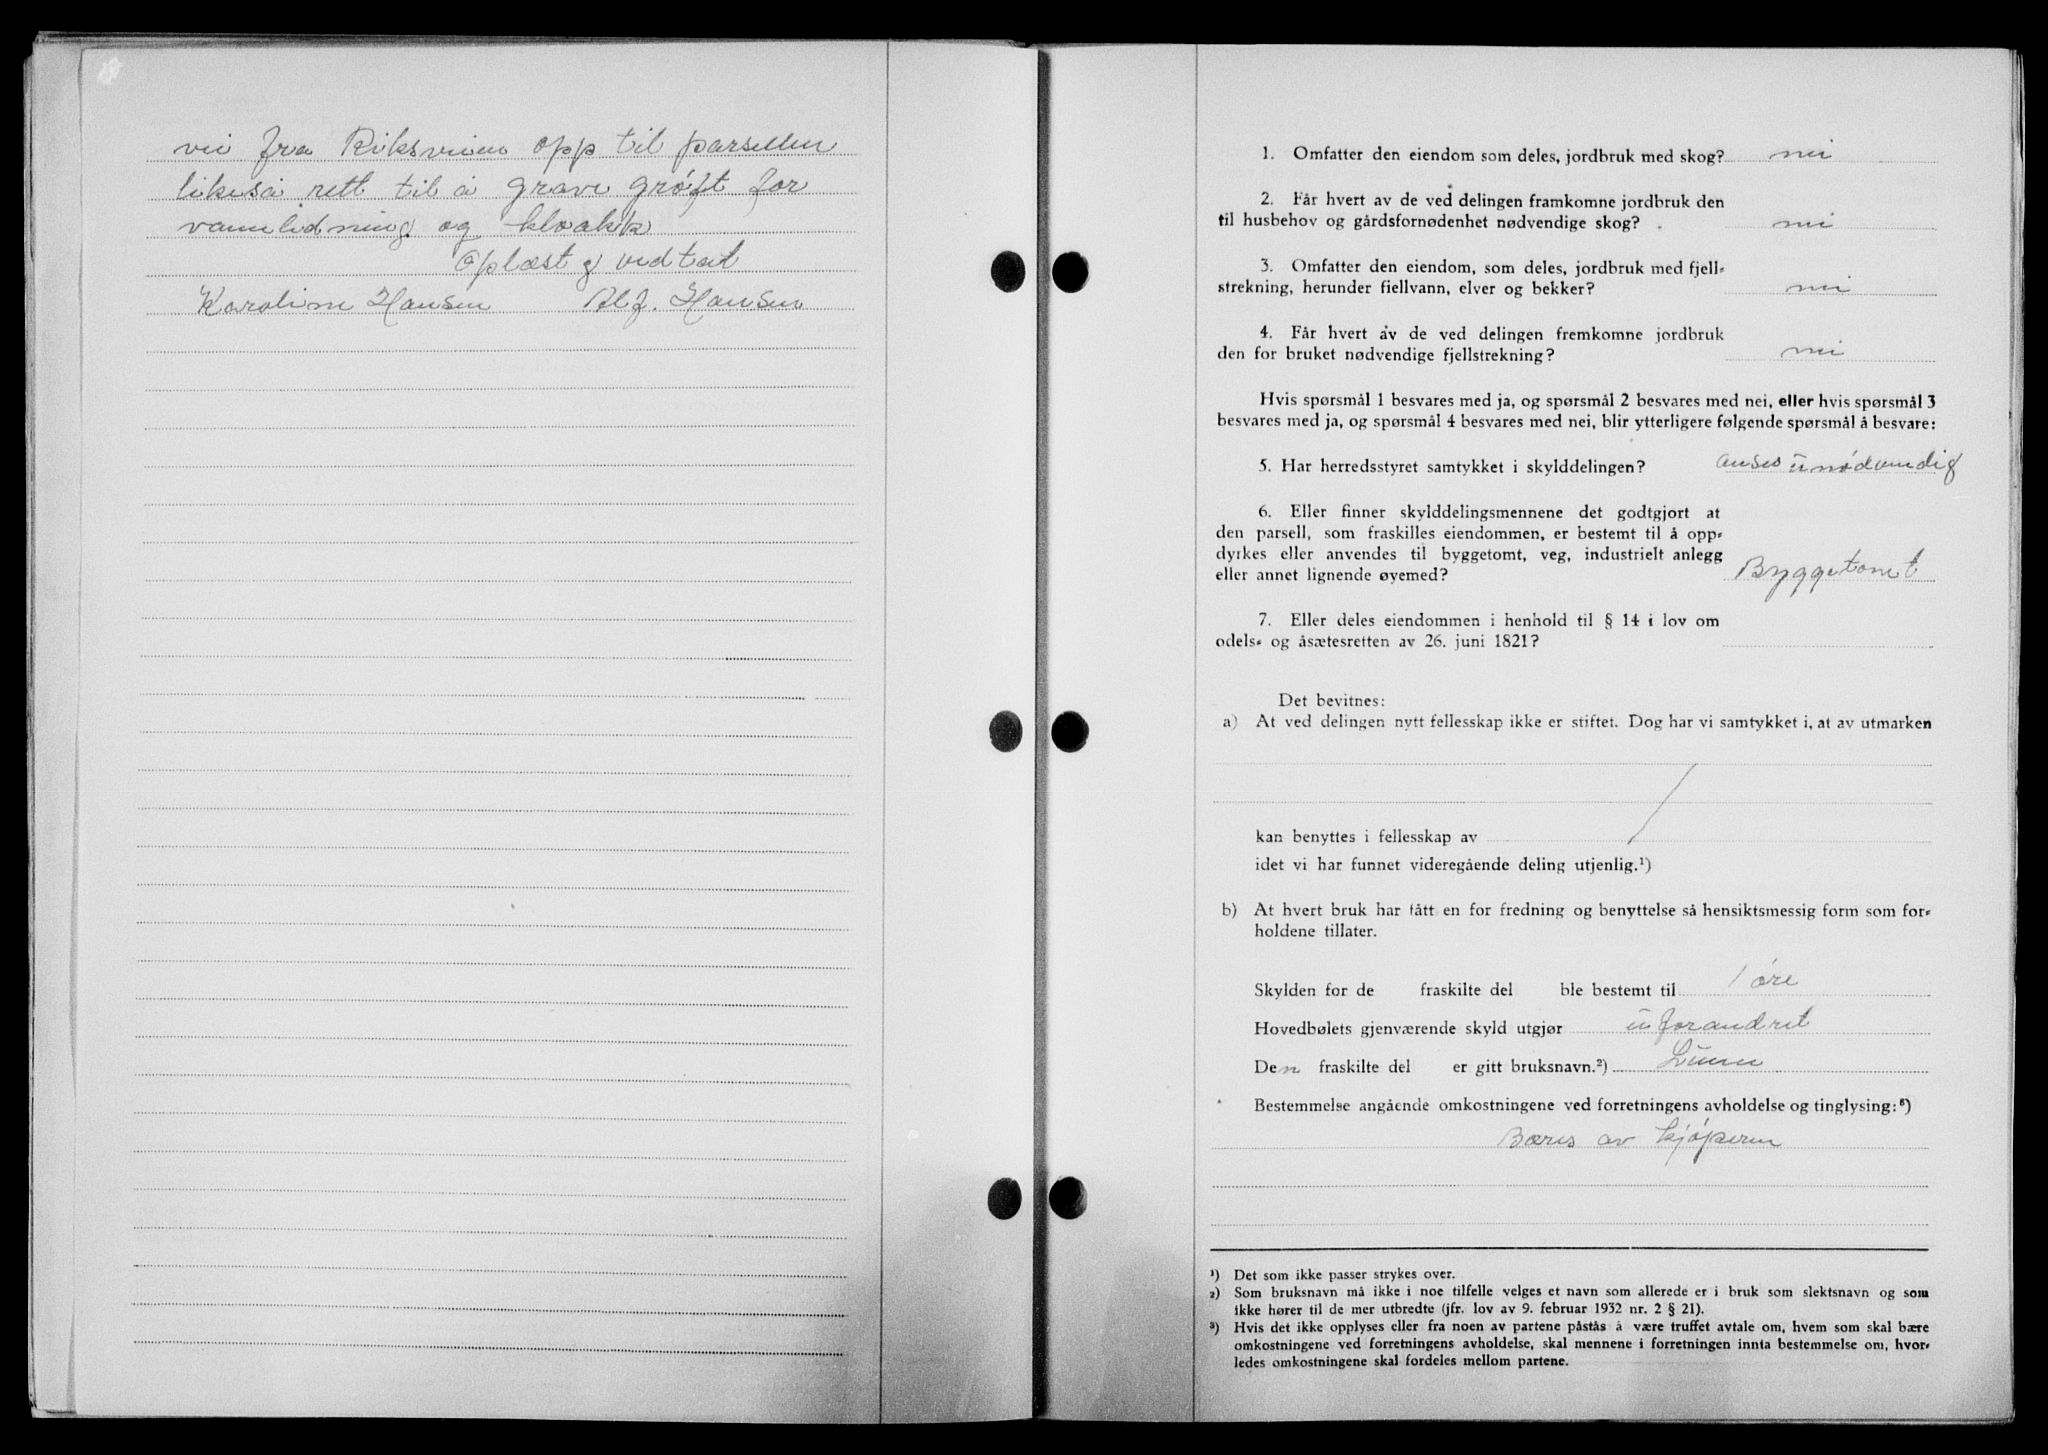 vei fra Riksveien opp til parsellen
likeså rett til å grave grøft for
vannledning og kloakk
Oplæst og vedtat
Karoline Hansen Alf. Hansen
1. Omfatter den eiendom som deles, jordbruk med skog? nei
2. Får hvert av de ved delingen framkomne jordbruk den
til husbehov og gårdsfornødenhet nødvendige skog? nei
3. Omfatter den eiendom, som deles, jordbruk med fjell-
strekning, herunder fiellvann, elver og bekker? nei
4. Får hvert av de ved delingen fremkomne jordbruk
den for bruket nødvendige fjellstrekning? nei
Hvis spørsmål 1 besvares med ja, og spørsmål 2 besvares med nei, eller hvis spørsmål 3
besvares med ja, og spørsmål 4 besvares med nei, blir ytterligere følgende spørsmål å besvare:
5. Har herredsstyret samtykket i skylddelingen? anses unødvendig
6. Eller finner skylddelingsmennene det godtgjort at
den parsell, som fraskilles eiendommen, er bestemt til å opp-
dyrkes eller anvendes til byggetomt, veg, industrielt anlegg
eller annet lignende øyemed? Byggetomt
7. Eller deles eiendommen i henhold til § 14 i lov om
odels- og åsætesretten av 26. juni 1821?
Det bevitnes:
a) At ved delingen nytt fellesskap ikke er stiftet. Dog har vi samtykket i, at av utmarken
kan benyttes i fellesskap av
idet vi har funnet videregående deling utjenlig.¹)
b) At hvert bruk har fått en for fredning og benyttelse så hensiktsmessig form som for-
holdene tillater.
Skylden for de fraskilte del ble bestemt til 1 øre
Hovedbølets gjenværende skyld utgjør uforandret
Den fraskilte del er gitt bruksnavn.²)
Bestemmelse angående omkostningene ved forretningens avholdelse og tinglysing:⁸)
Bæres av kjøperen
¹) Det som ikke passer strykes over.
₂) Som bruksnavn må ikke i noe tilfelle velges et navn som allerede er i bruk som slektsnavn og som
ikke hører til de mer utbredte (jfr. lov av 9. februar 1932 nr. 2 § 21).
³) Hvis det ikke opplyses eller fra noen av partene påstås å være truffet avtale om, hvem som skal bære
omkostningene ved forretningens avholdelse, skal mennene i forretningen innta bestemmelse om, hvor-
ledes omkostningene skal fordeles mellom partene.